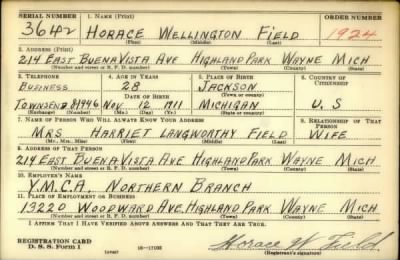 SERIAL NUMBER 1. NAME (Print) ORDER NUMBER
3642 HORACE WELLINGTON FIELD 1924
(First) (Middle) (Last)
2. ADDRESS (Print)
214 EAST BUENA VISTA AVE HIGHLAND PARK WAYNE MICH
(Number and street or R. F. D. number) (Town) (County) (State)
3. TELEPHONE 4. AGE IN YEARS 5. PLACE OF BIRTH 6. COUNTRY OF CITIZENSHIP
BUSINESS 28 JACKSON
DATE OF BIRTH (Town or county)
TOWNSEND 81946 NOV. 12 1911 MICHIGAN U.S
(Exchange) (Number) (Mo.) (Day) (Yr.) (State or country)
7. NAME OF PERSON WHO WILL ALWAYS KNOW YOUR ADDRESS 8. RELATIONSHIP OF THAT PERSON
MRS HARRIET LANGWORTHY FIELD WIFE
(Mr., Mrs., Miss) (First) (Middle) (Last)
9. ADDRESS OF THAT PERSON
214 EAST BUENA VISTA AVE HIGHLAND PARK WAYNE MICH
(Number and street or R. F. D. number) (Town) (County) (State)
10. EMPLOYER'S NAME
Y.M.C.A. NORTHERN BRANCH
11. PLACE OF EMPLOYMENT OR BUSINESS
13220 WOODWARD AVE. HIGHLAND PARK WAYNE MICH
(Number and street or R. F. D. number) (Town) (County) (State)
I AFFIRM THAT I HAVE VERIFIED ABOVE ANSWERS AND THAT THEY ARE TRUE.
REGISTRATION CARD
D. S. S. Form 1 16—17105 Horace W. Field
(Registrant's signature)